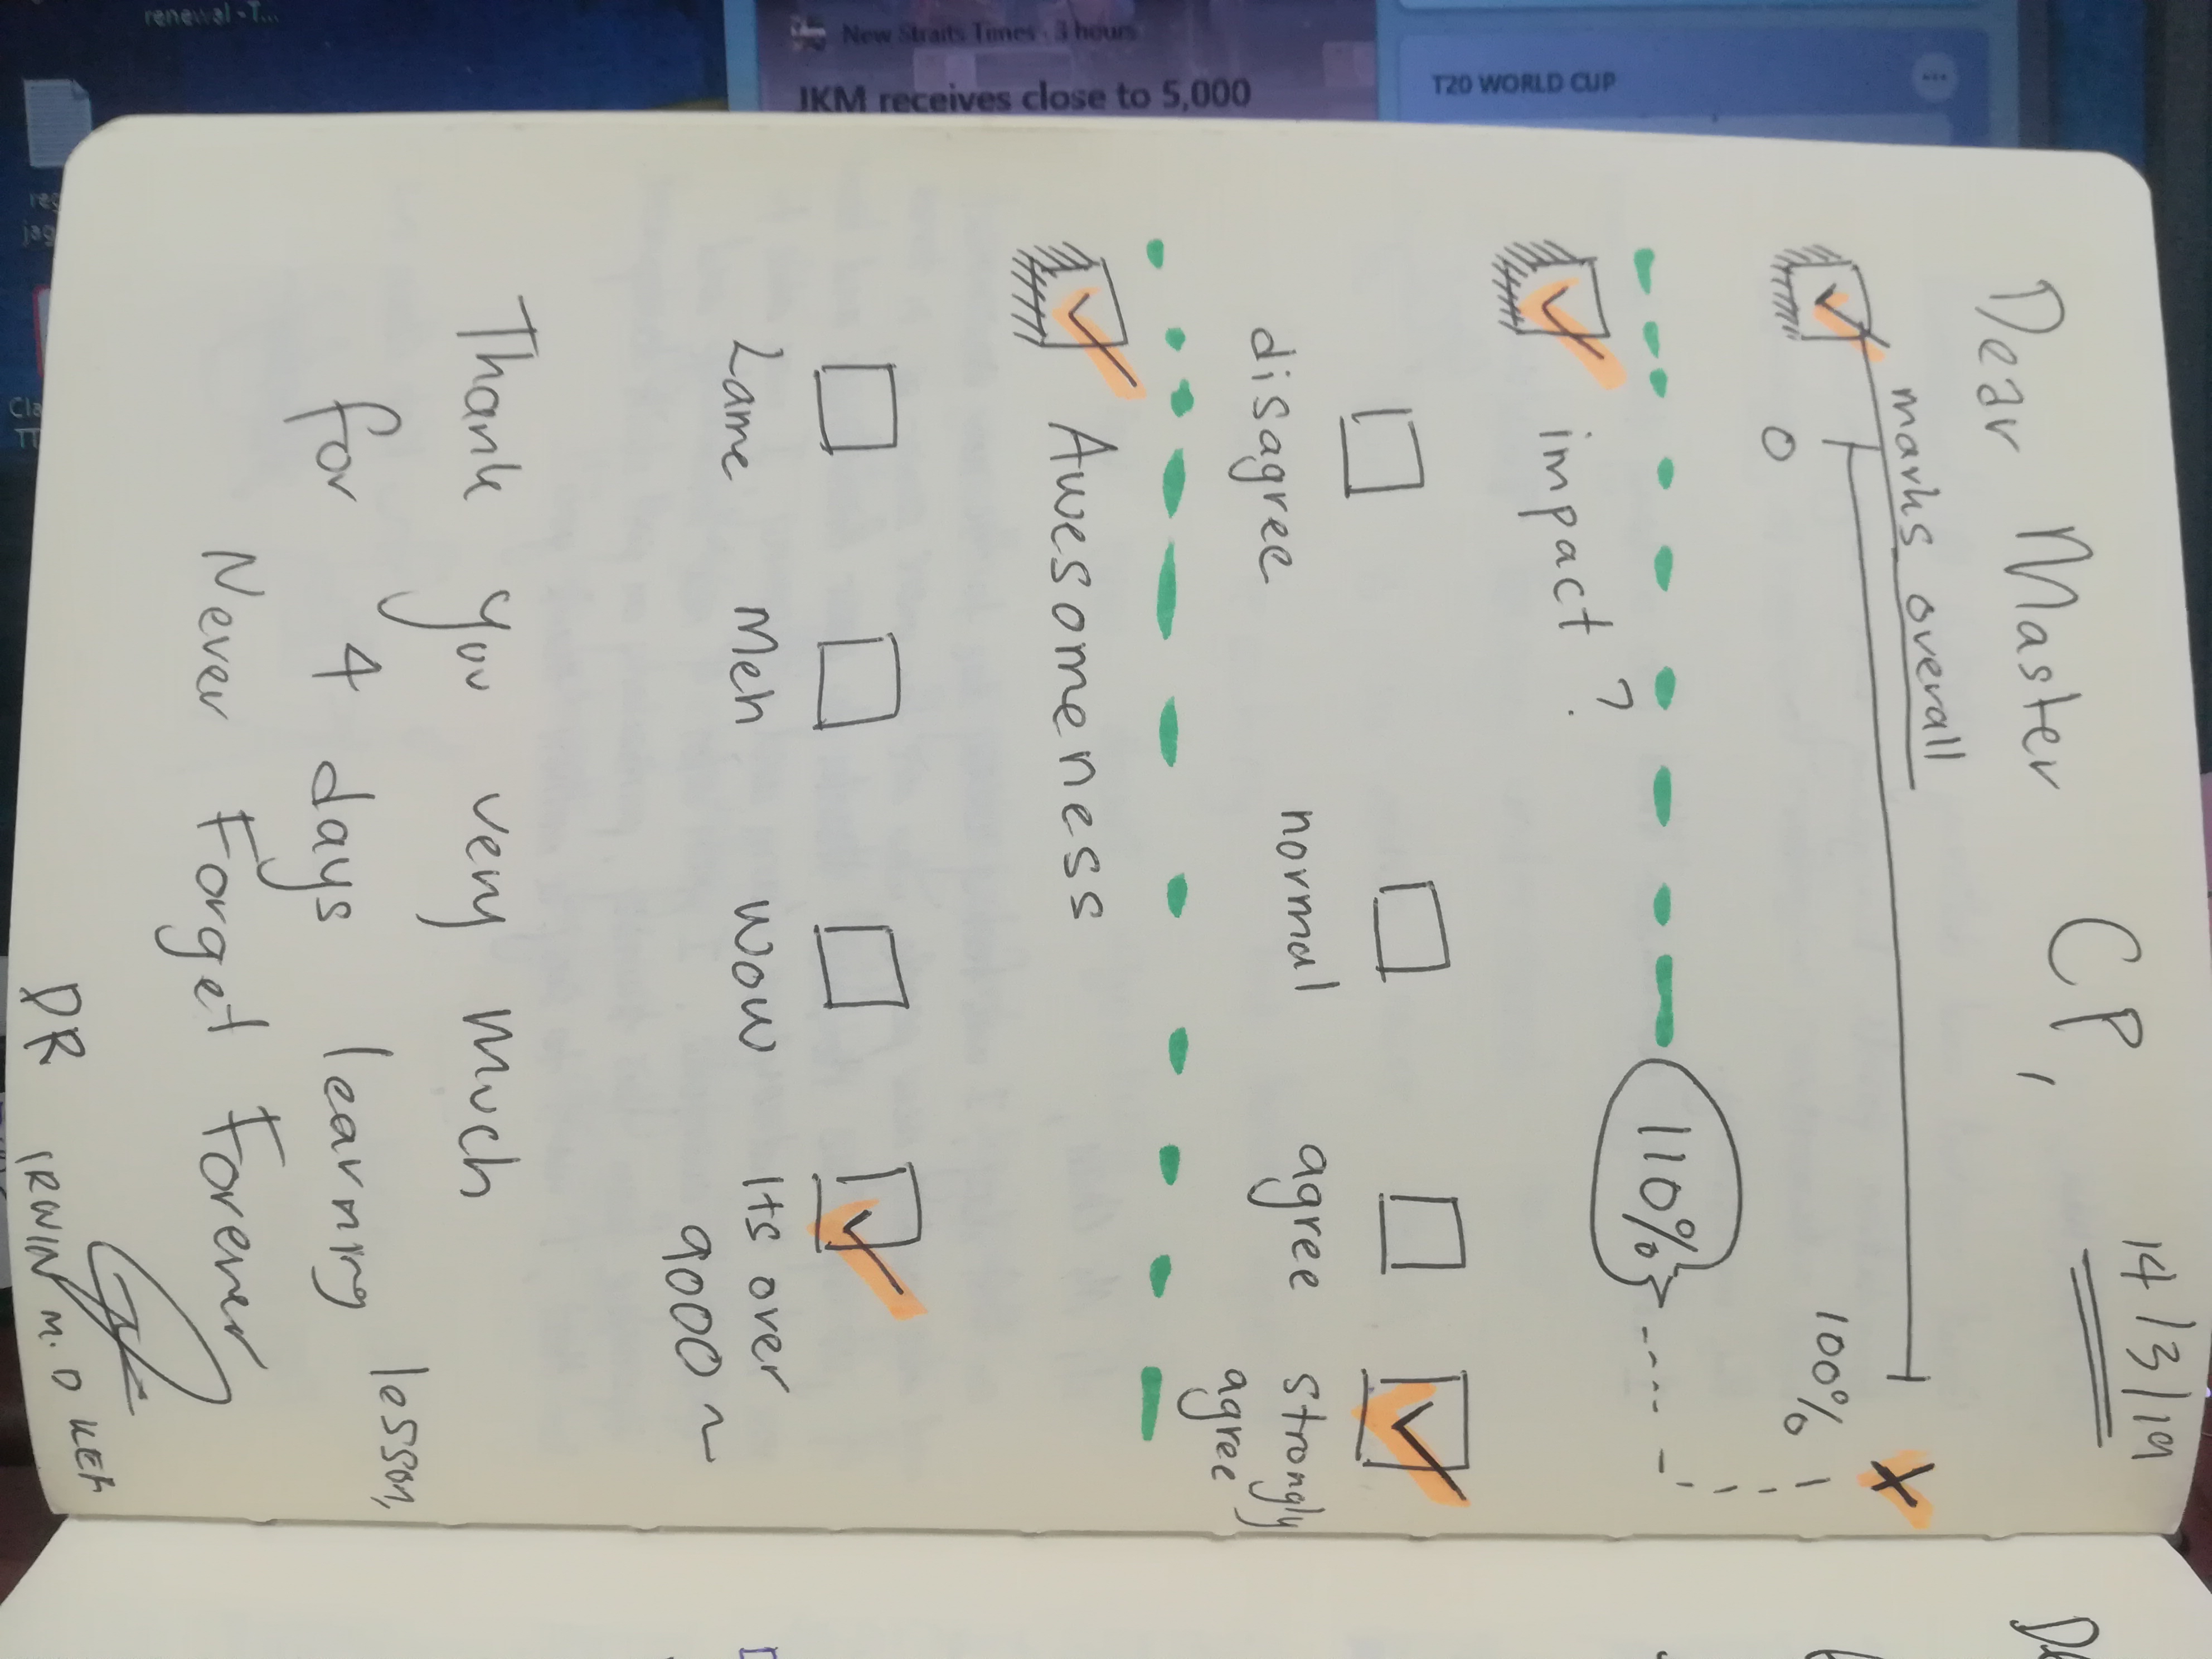 renewal -T...
New Straits Times · 3 hours
JKM receives close to 5,000
T20 WORLD CUP
14/3/19
Dear Master CP,
marks overall
0
100%
110%
impact?
disagree
normal
agree
strongly
agree
Awesomeness
Lame
Meh
Wow
Its over
9000~
Thank you very much
for 4 days learning lesson,
Never Forget Forever
DR IRWIN M. O KEH